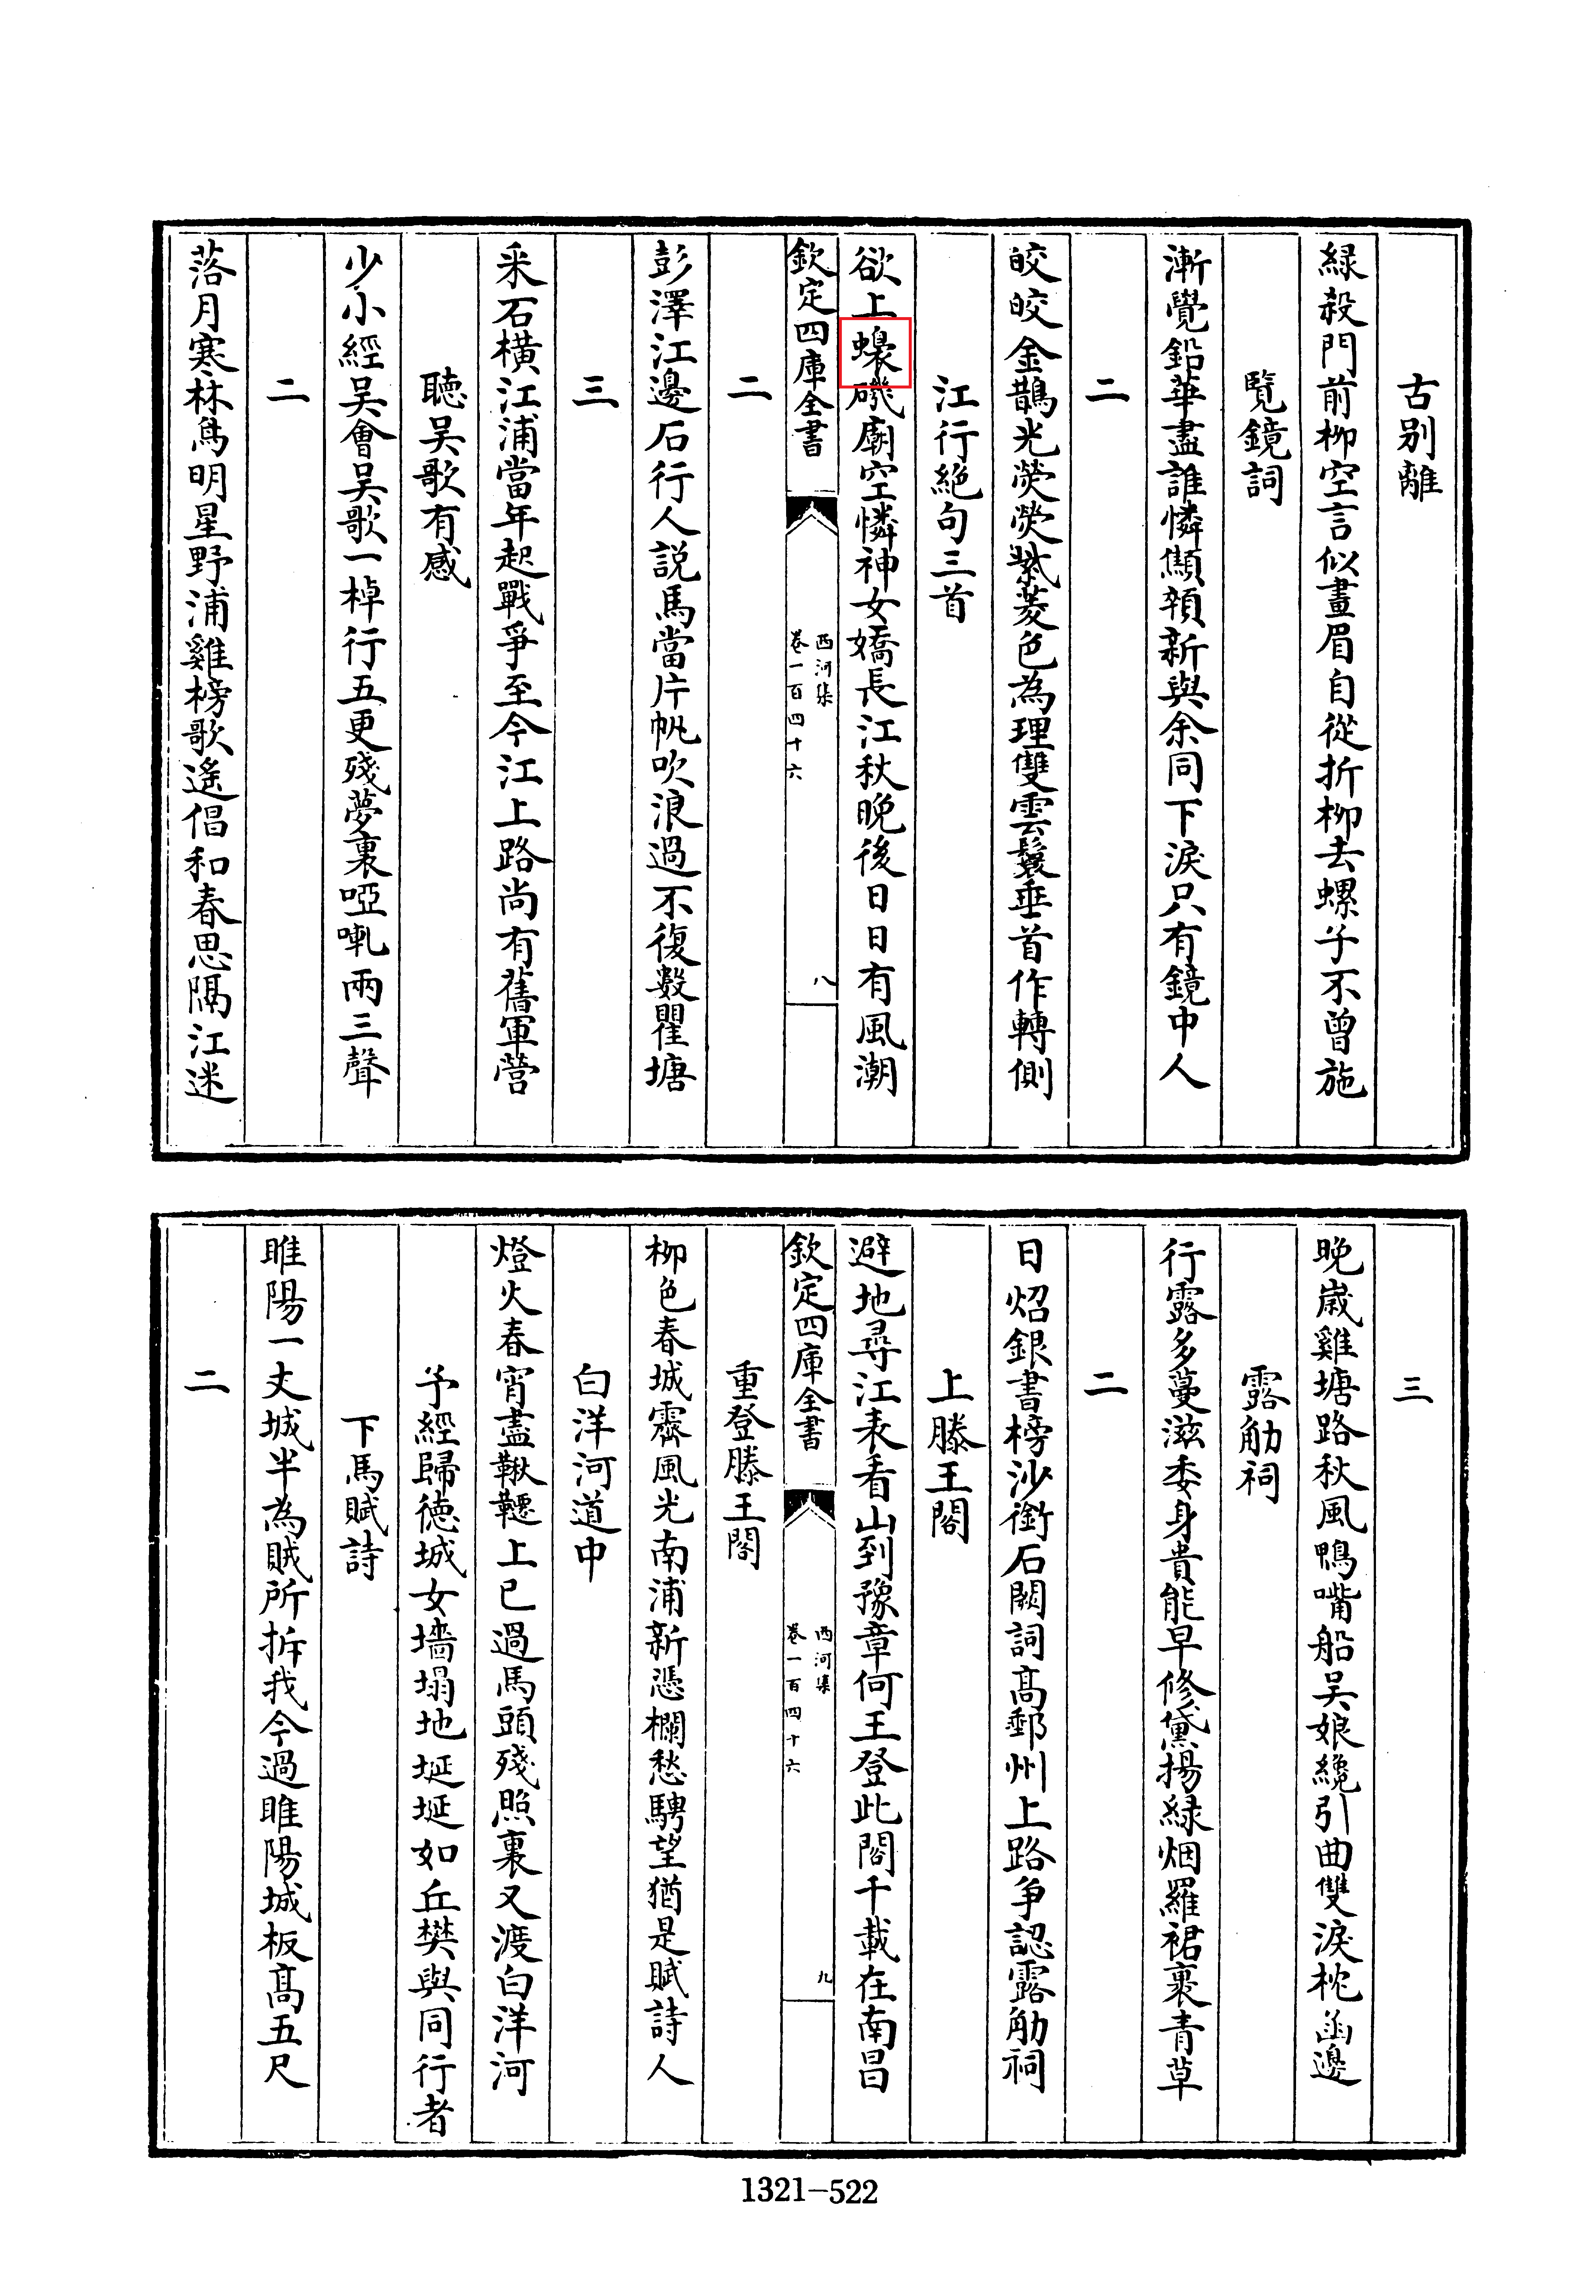 古别離
緑殺門前柳空言似畫眉自從折柳去螺子不曾施
覽鏡詞
漸覺鉛華盡誰憐顦顇新與余同下淚只有鏡中人
二
皎皎金鵲光熒熒紫菱色為理雙雲鬟垂首作轉側
江行絶句三首
欲上蟂磯廟空憐神女嬌長江秋晚後日日有風潮
欽定四庫全書
西河集
卷一百四十六
八
二
彭澤江邊石行人説馬當片帆吹浪過不復數瞿塘
三
采石橫江浦當年起戰爭至今江上路尚有舊軍營
聽吴歌有感
少小經吴會吴歌一棹行五更殘夢裏啞喇兩三聲
二
落月寒林鳥明星野浦雞榜歌遙倡和春思隔江迷
三
晚嵗雞塘路秋風鴨嘴船吴娘纔引曲雙淚枕函邊
露觔祠
行露多蔓滋委身貴能早修黛揚緑烟羅裙裹青草
二
日炤銀書榜沙銜石闕詞髙郵州上路争認露觔祠
上滕王閣
避地尋江表看山到豫章何王登此閣千載在南昌
欽定四庫全書
西河集
卷一百四十六
九
重登滕王閣
柳色春城霽風光南浦新憑欄愁騁望猶是賦詩人
白洋河道中
燈火春宵盡鞦韆上已過馬頭殘照裏又渡白洋河
予經歸徳城女墻塌地埏埏如丘樊與同行者
下馬賦詩
睢陽一丈城半為賊所拆我今過睢陽城板髙五尺
二
1321-522